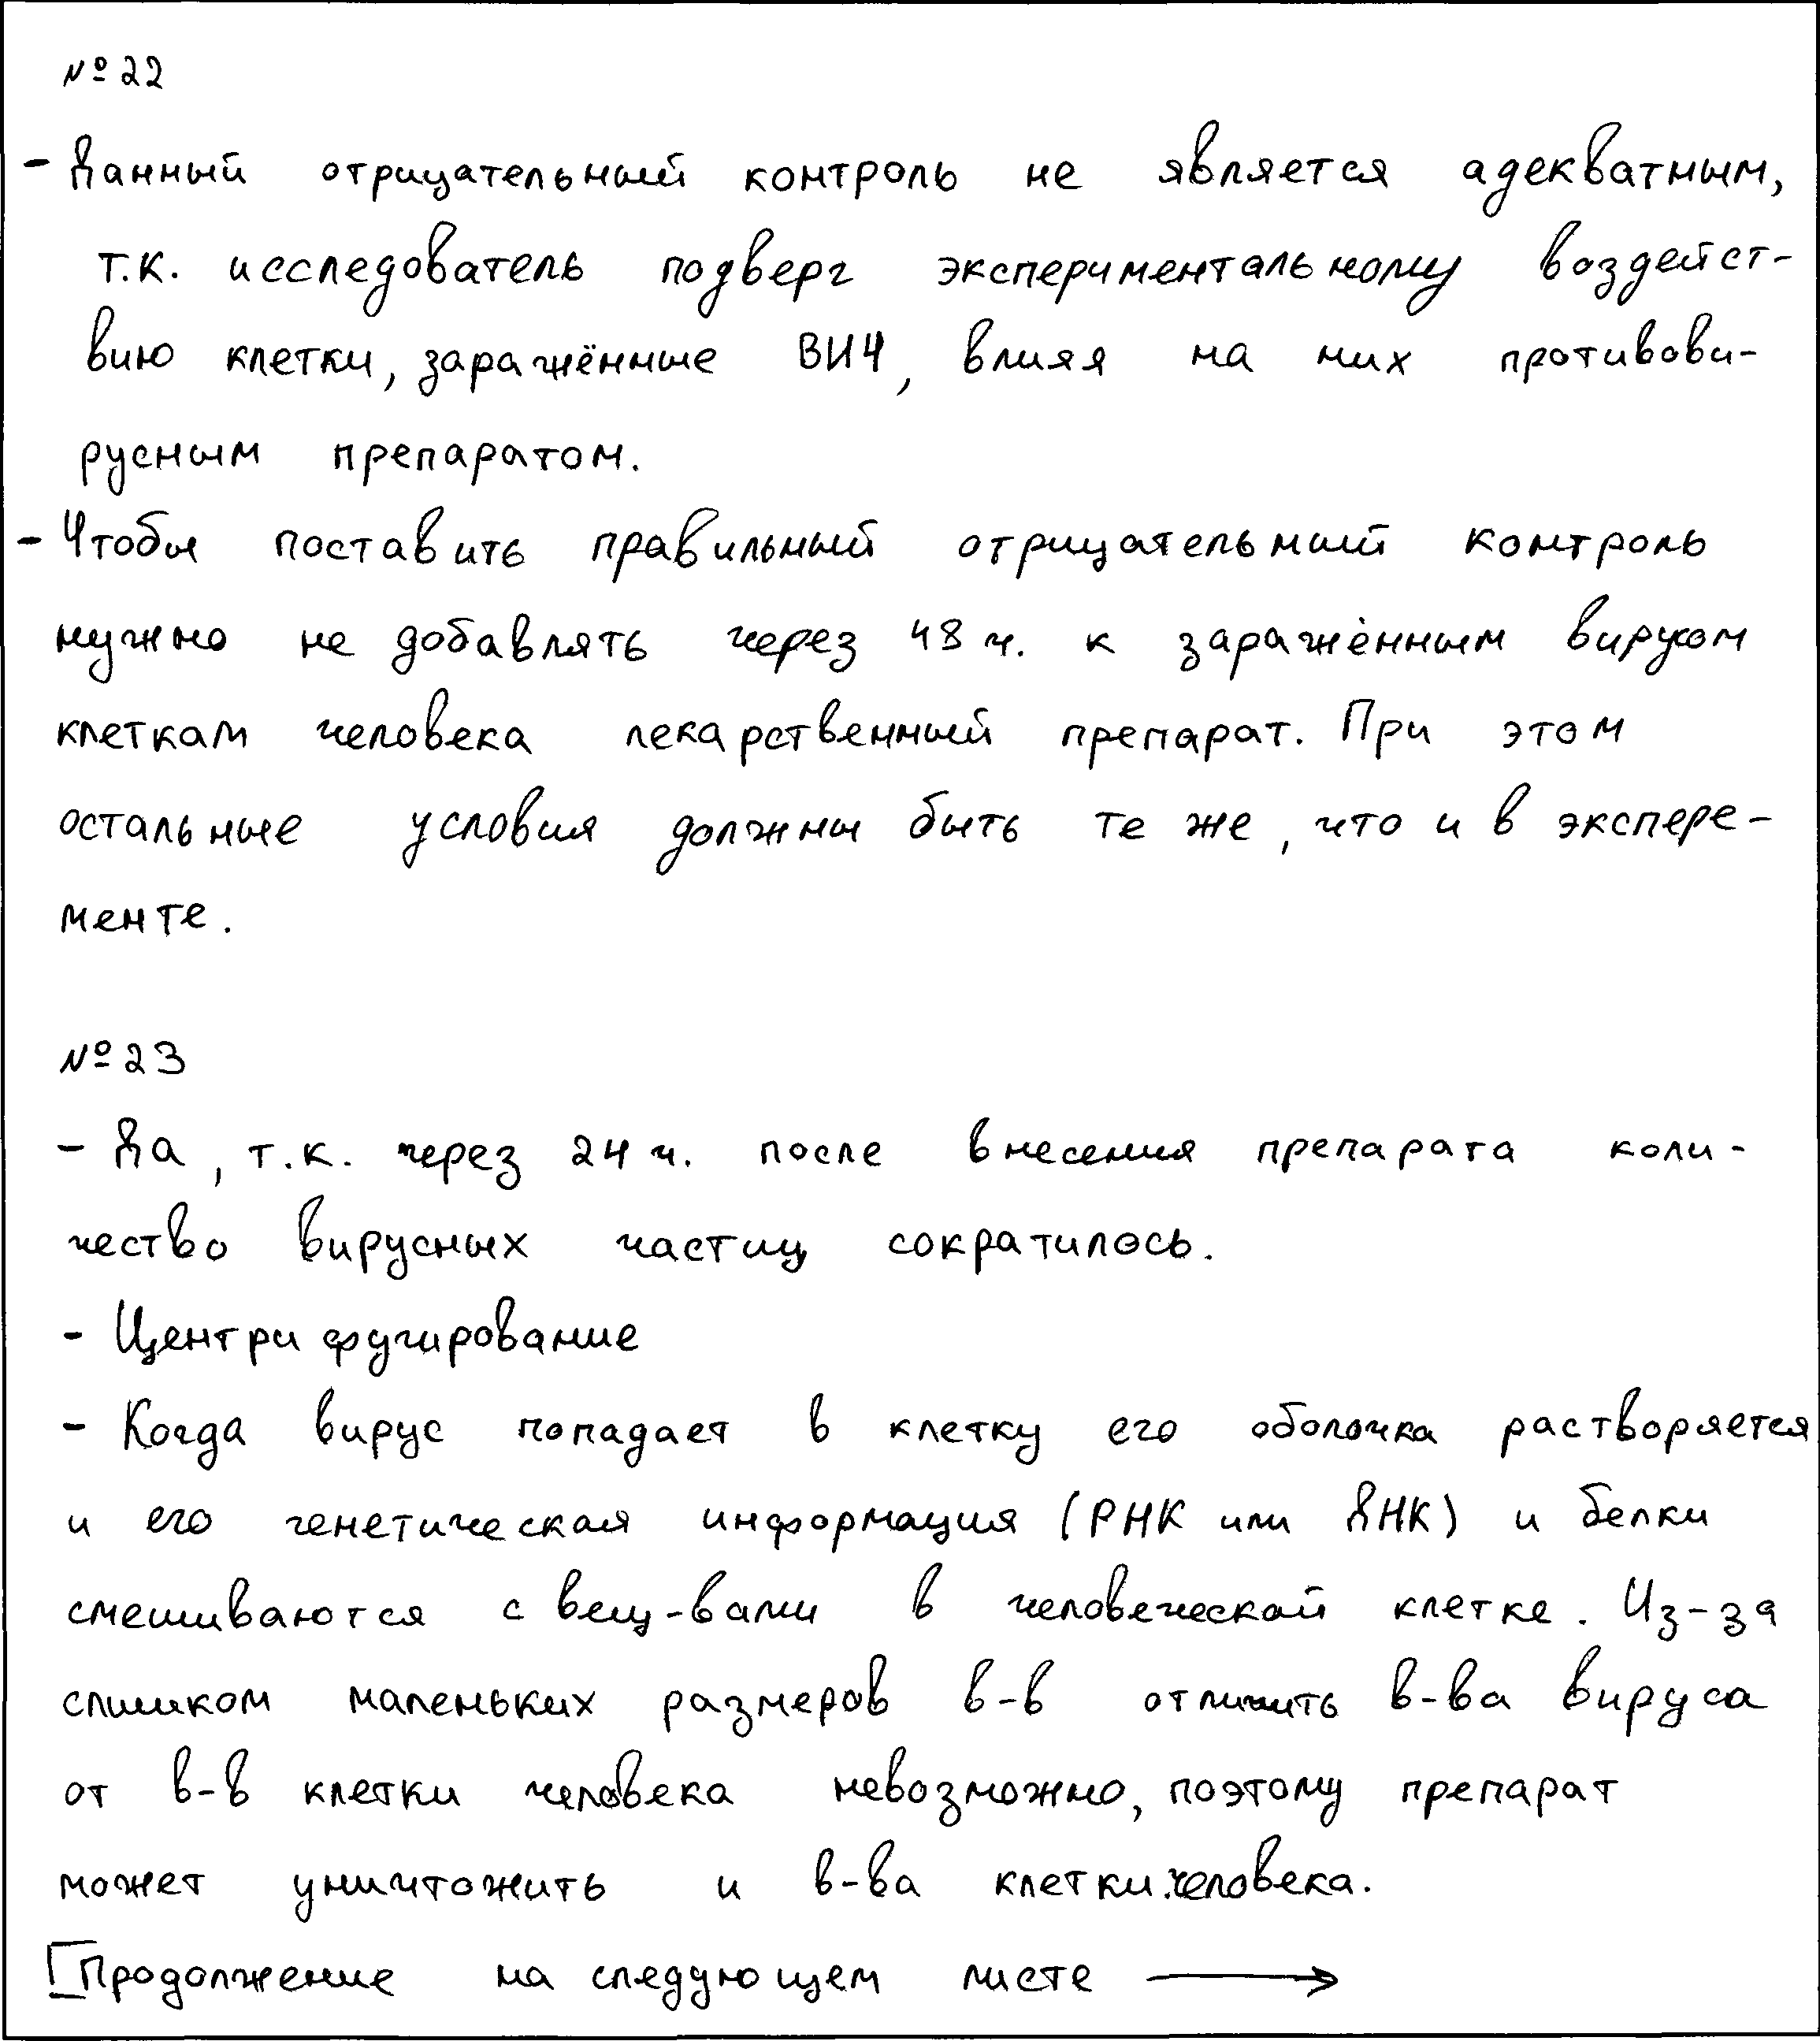 № 22
- Данный отрицательный контроль не является адекватным,
т.к. исследователь подверг экспериментальному воздейст-
вию клетки, заражённые ВИЧ, влияя на них противови-
русным препаратом.
- Чтобы поставить правильный отрицательный контроль
нужно не добавлять через 48 ч. к заражённым вирусом
клеткам человека лекарственный препарат. При этом
остальные условия должны быть те же, что и в экспере-
менте.
№ 23
- Да, т.к. через 24 ч. после внесения препарата коли-
чество вирусных частиц сократилось.
- Центрифугирование
- Когда вирус попадает в клетку его оболочка растворяется
и его генетическая информация (РНК или ДНК) и белки
смешиваются с вещ-вами в человеческой клетке. Из-за
слишком маленьких размеров в-в отличить в-ва вируса
от в-в клетки человека невозможно, поэтому препарат
может уничтожить и в-ва клетки человека.
[Продолжение на следующем листе →